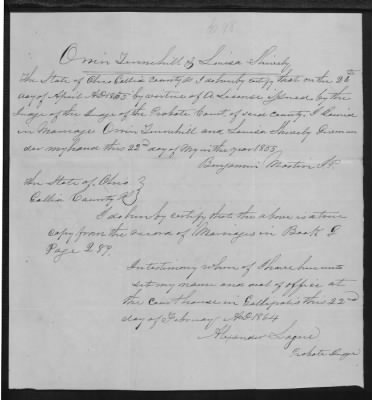 Orrin Tunnehill & Louisa Shively
The State of Ohio Gallia county SS I do hereby certify that on the 28th
day of April AD 1855 by virtue of a License issued by the
Judge of the Judge of the Probate Court of said county. I Joined
in Marriage Orrin Tunnehill and Louisa Shively Given un
der my hand this 22nd day of May in the year 1855
Benjamin Martin J.P.
The State of Ohio
Gallia County SS
I do hereby certify that the above is a true
copy from the record of Marriages in Book G
Page 289.
In testimony whereof I have hereunto
set my name and seal of office at
the court house in Gallipolis this 22nd
day of February AD 1864
Alexander Logue
Probate Judge